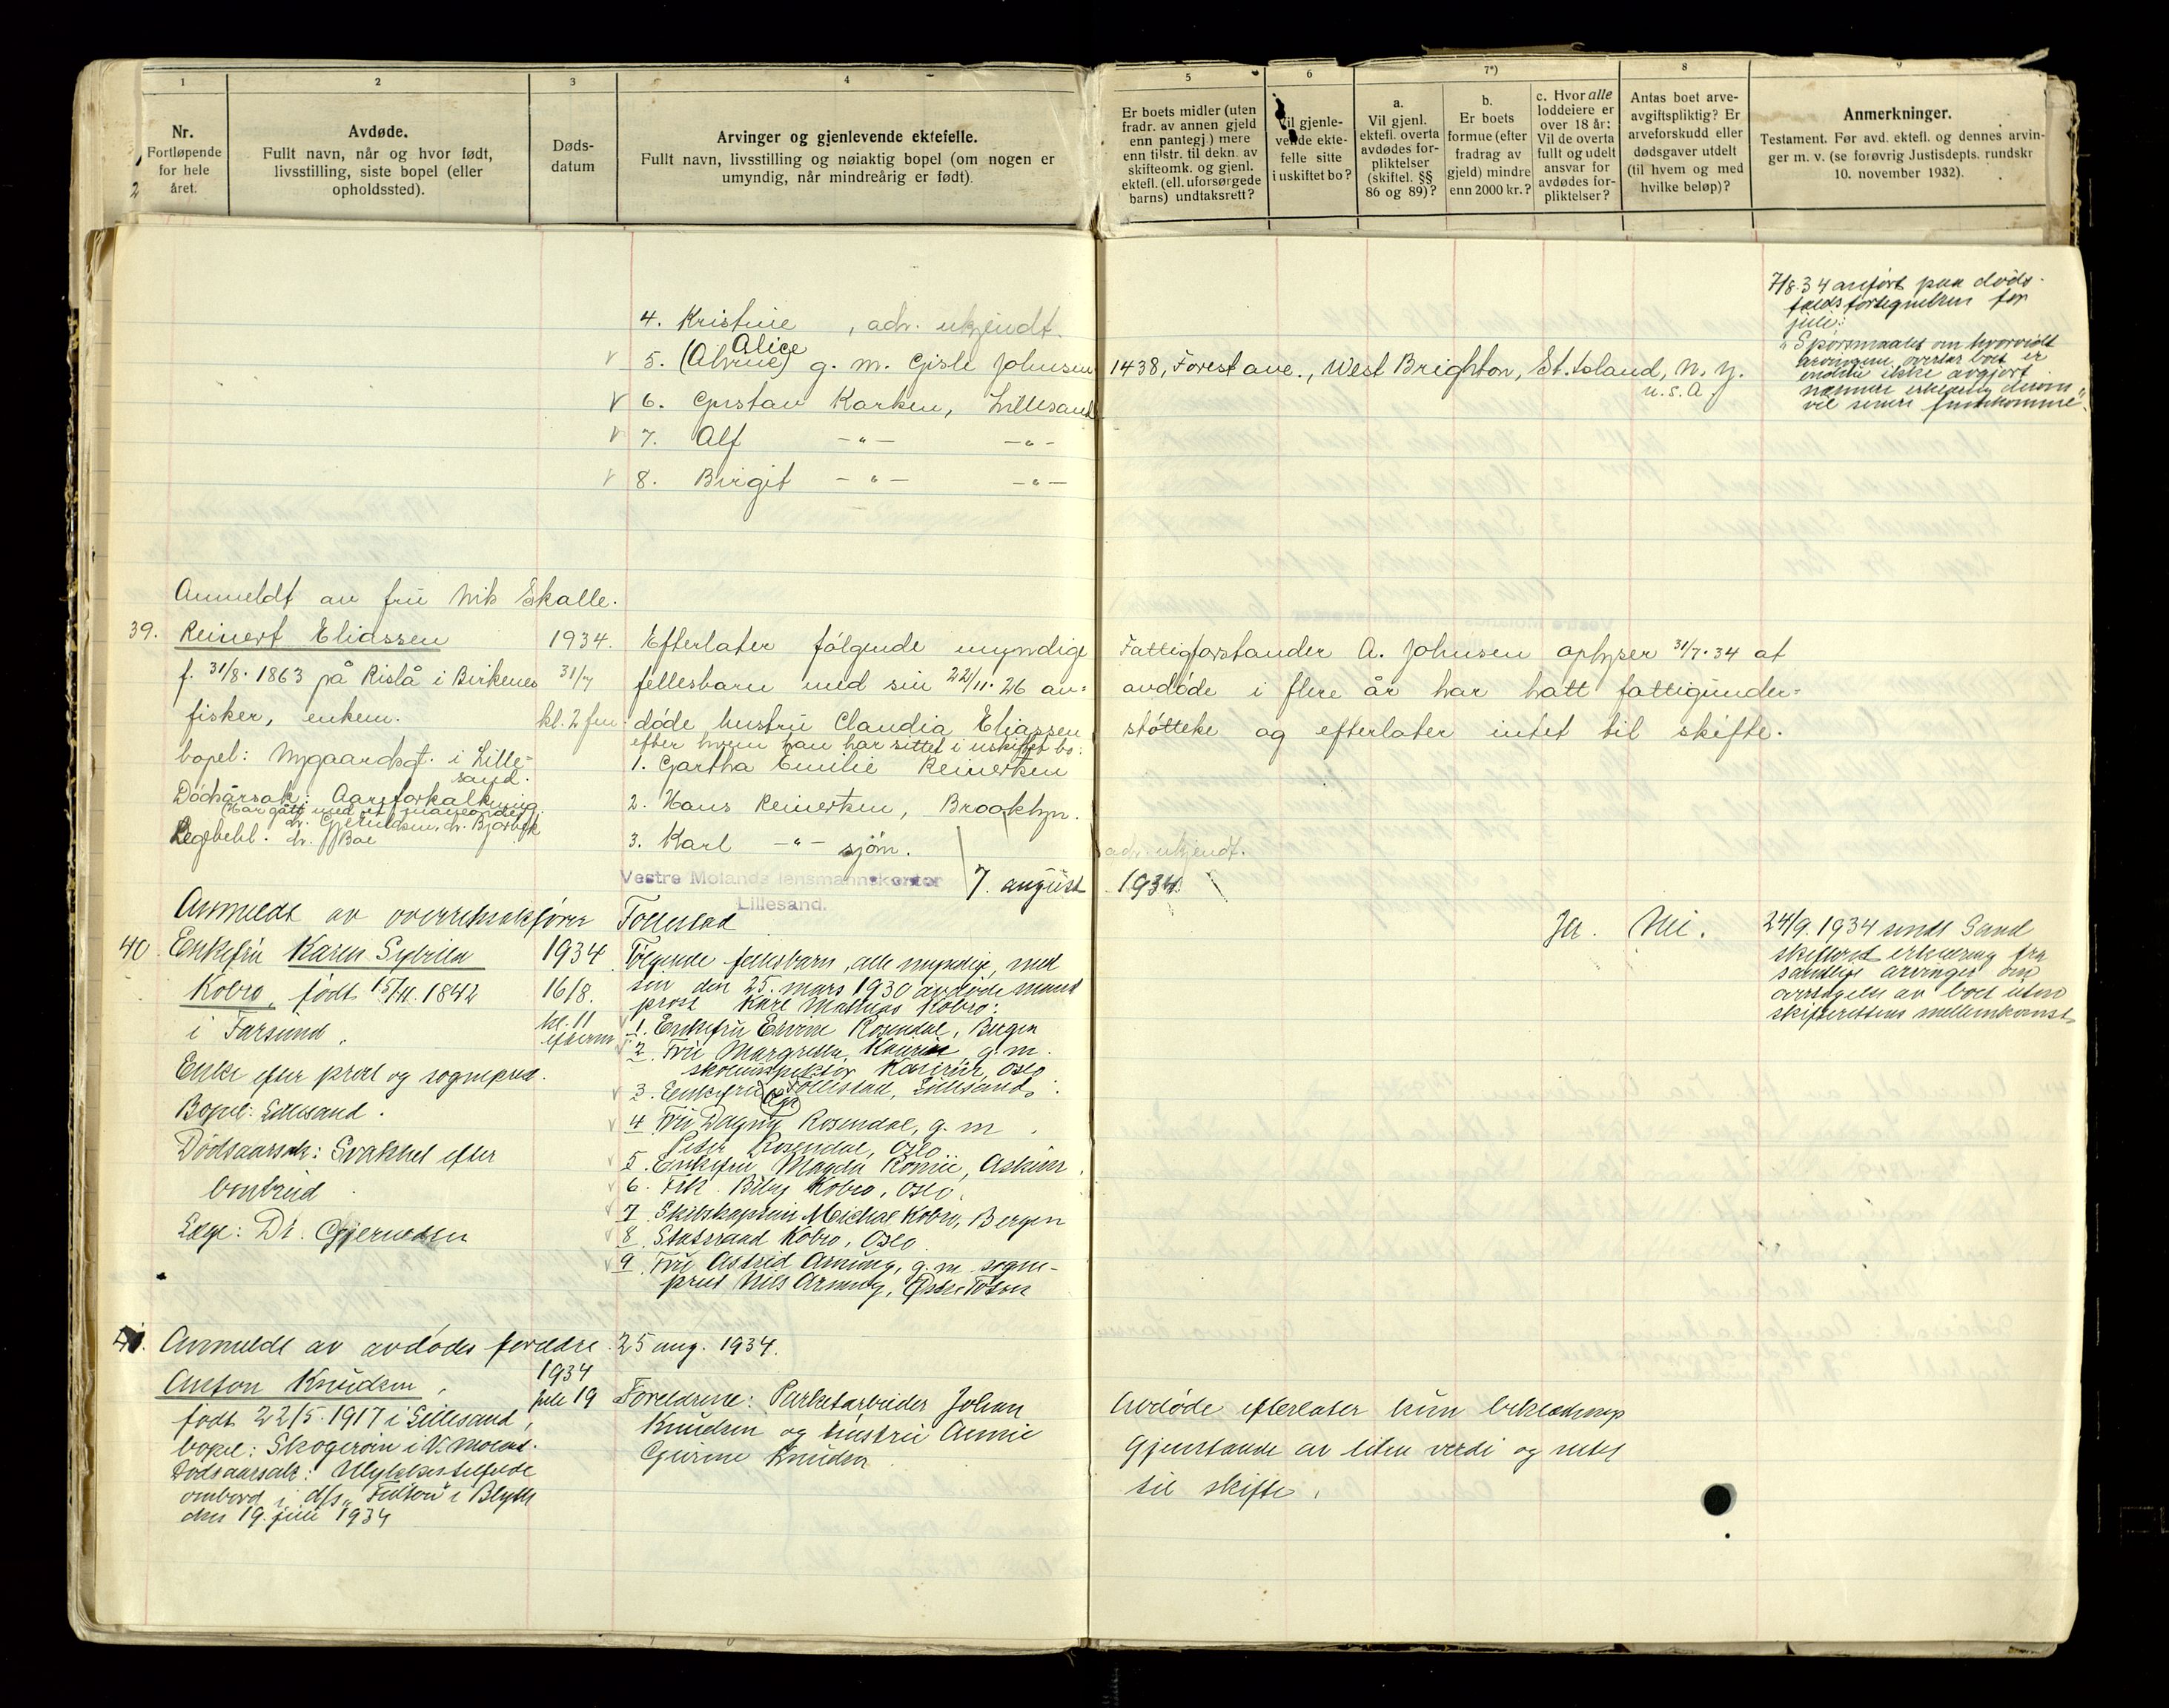 1
Nr.
Fortløpende
for hele
året.
2
Avdøde.
Fullt navn, når og hvor født,
livsstilling, siste bopel (eller
opholdssted).
3
Døds-
datum
4
Arvinger og gjenlevende ektefelle.
Fullt navn, livsstilling og nøiaktig bopel (om nogen er
umyndig, når mindreårig er født).
5
Er boets midler (uten
fradr. av annen gjeld
enn pantegj.) mere
enn tilstr. til dekn. av
skifteomk. og gjenl.
ektefl. (ell. uforsørgede
barns) undtaksrett?
6
Vil gjenle-
vende ekte-
felle sitte
i uskiftet bo?
7*)
a.
Vil gjenl.
ektefl. overta
avdødes for-
pliktelser
(skiftel. §§
86 og 89)?
b.
Er boets
formue (efter
fradrag av
gjeld) mindre
enn 2000 kr.?
c. Hvor alle
loddeiere er
over 18 år:
Vil de overta
fullt og udelt
ansvar for
avdødes for-
pliktelser?
8
Antas boet arve-
avgiftspliktig? Er
arveforskudd eller
dødsgaver utdelt
(til hvem og med
hvilke beløp)?
9
Anmerkninger.
Testament. Før avd. ektefl. og dennes arvin-
ger m. v. (se forøvrig Justisdepts. rundskr
10. november 1932).
4. Kristine , adr. ukjendt.
Alice
5. ( ) g. m. Gisle Johnsen 1438, Forest ave., West Brighton, St. Island, N. Y.
U. S. A.
6. Gustav Karlsen, Lillesand
7. Alf -"- -"-
8. Birgit -"- -"-
7/8.34 anført paa døds-
faldsfortegnelsen for
juli:
"Spørsmaalet om hvorvidt
arvingene overtar boet er
endnu ikke avgjort
nærmere erklæring derom
vil senere fremkomme".
Anmeldt av fru Nils Skalle.
39. Reinert Eliassen
f. 31/8. 1863 på Rislå i Birkenes
fisker, enkem.
bopel: Nygaardsgt. i Lille-
sand.
Dødsårsak: Aareforkalkning
Legebehl. dr. Boe
1934.
31/7
kl. 2 fm.
Efterlater følgende myndige
fellesbarn med sin 22/11.26 av-
døde hustru Claudia Eliassen
efter hvem han har sittet i uskiftet bo:
1. Gartha Emilie Reinertsen
2. Hans Reinertsen, Brooklyn.
3. Karl -"- sjøm. adr. ukjendt.
Fattigforstander A. Johnsen oplyser 31/7.34 at
avdøde i flere år har hatt fattigunder-
støttelse og efterlater intet til skifte.
Vestre Molands lensmannskontor
Lillesand.
7. august 1934.
Anmeldt av overretssakfører Tollefsad
40. Enkefru Karen Sybilla
Kobro, født 15/11. 1842
i Farsund.
Enke efter prost og sogneprest.
Bopel: Lillesand.
Dødsaarsak: Svakhet efter
benbrud
Læge: Dr. Gjeruldsen
1934
16/8.
kl. 11
efterm.
Følgende fellesbarn, alle myndige, med
sin den 25. mars 1930 avdøde mand
prost Karl Mathias Kobro:
1. Enkefru Rosendal, Bergen
2. Fru Margretha g. m.
skoleinspektør Oslo
3. Enkefru Tollefsad, Lillesand.
4. Fru Dagny Rosendal, g. m.
Peter Rosendal, Oslo.
5. Enkefru Magda Askim.
6. Frk. Kobro, Oslo.
7. Skibskaptein Michal Kobro, Bergen
8. Statsraad Kobro, Oslo
9. Fru Astrid Arnung, g. m. sogne-
prest Nils Arnung, Østre Toten
Ja. Nei.
24/9. 1934 sendt Sand
skifteret erklæring fra
samtlige arvinger om
overtagelse av boet uten
skifterettens mellemkomst
41. Anmeldt av avdødes foreldre 25 aug. 1934.
Anton Knudsen,
født 22/5. 1917 i Lillesand,
bopel: Skogerøin i V. Moland.
Dødsaarsak: Ulykkestilfælde
ombord i d/s "Fulton" i Blyth
den 19. juli 1934
1934
juli 19
Foreldrene: Parketarbeider Johan
Knudsen og hustru Annie
Knudsen
Avdøde efterlater kun beklædnings
gjenstande av liten verdi og intet
til skifte.